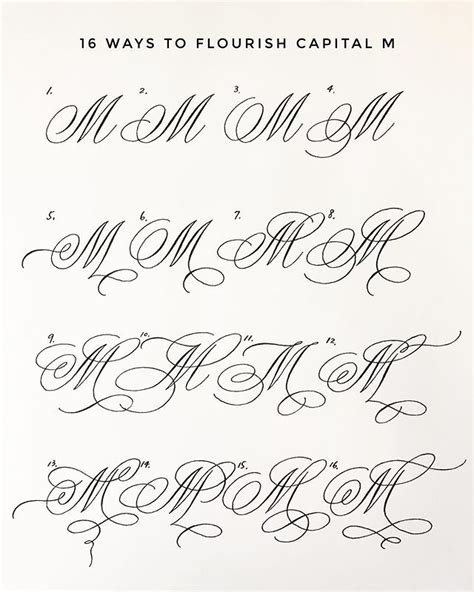 16 WAYS TO FLOURISH CAPITAL M
1. M 2. M 3. M 4. M
5. M 6. M 7. M 8. M
9. M 10. M 11. M 12. M
13. M 14. M 15. M 16. M